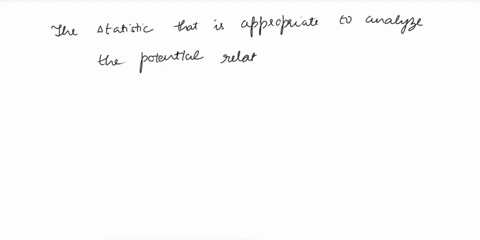 The statistic that is appropriate to analyze
the potential relat